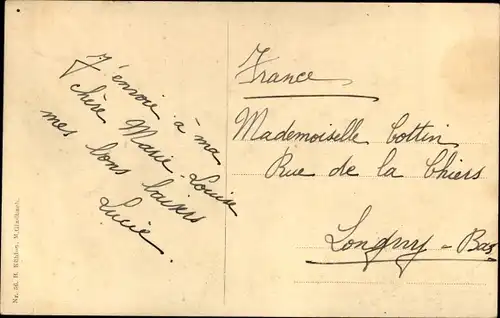 J'envoie à ma
chère Marie-Louise
mes bons baisers
Lucie.
France
Mademoiselle Cottin
Rue de la Chiers
Longwy-Bas